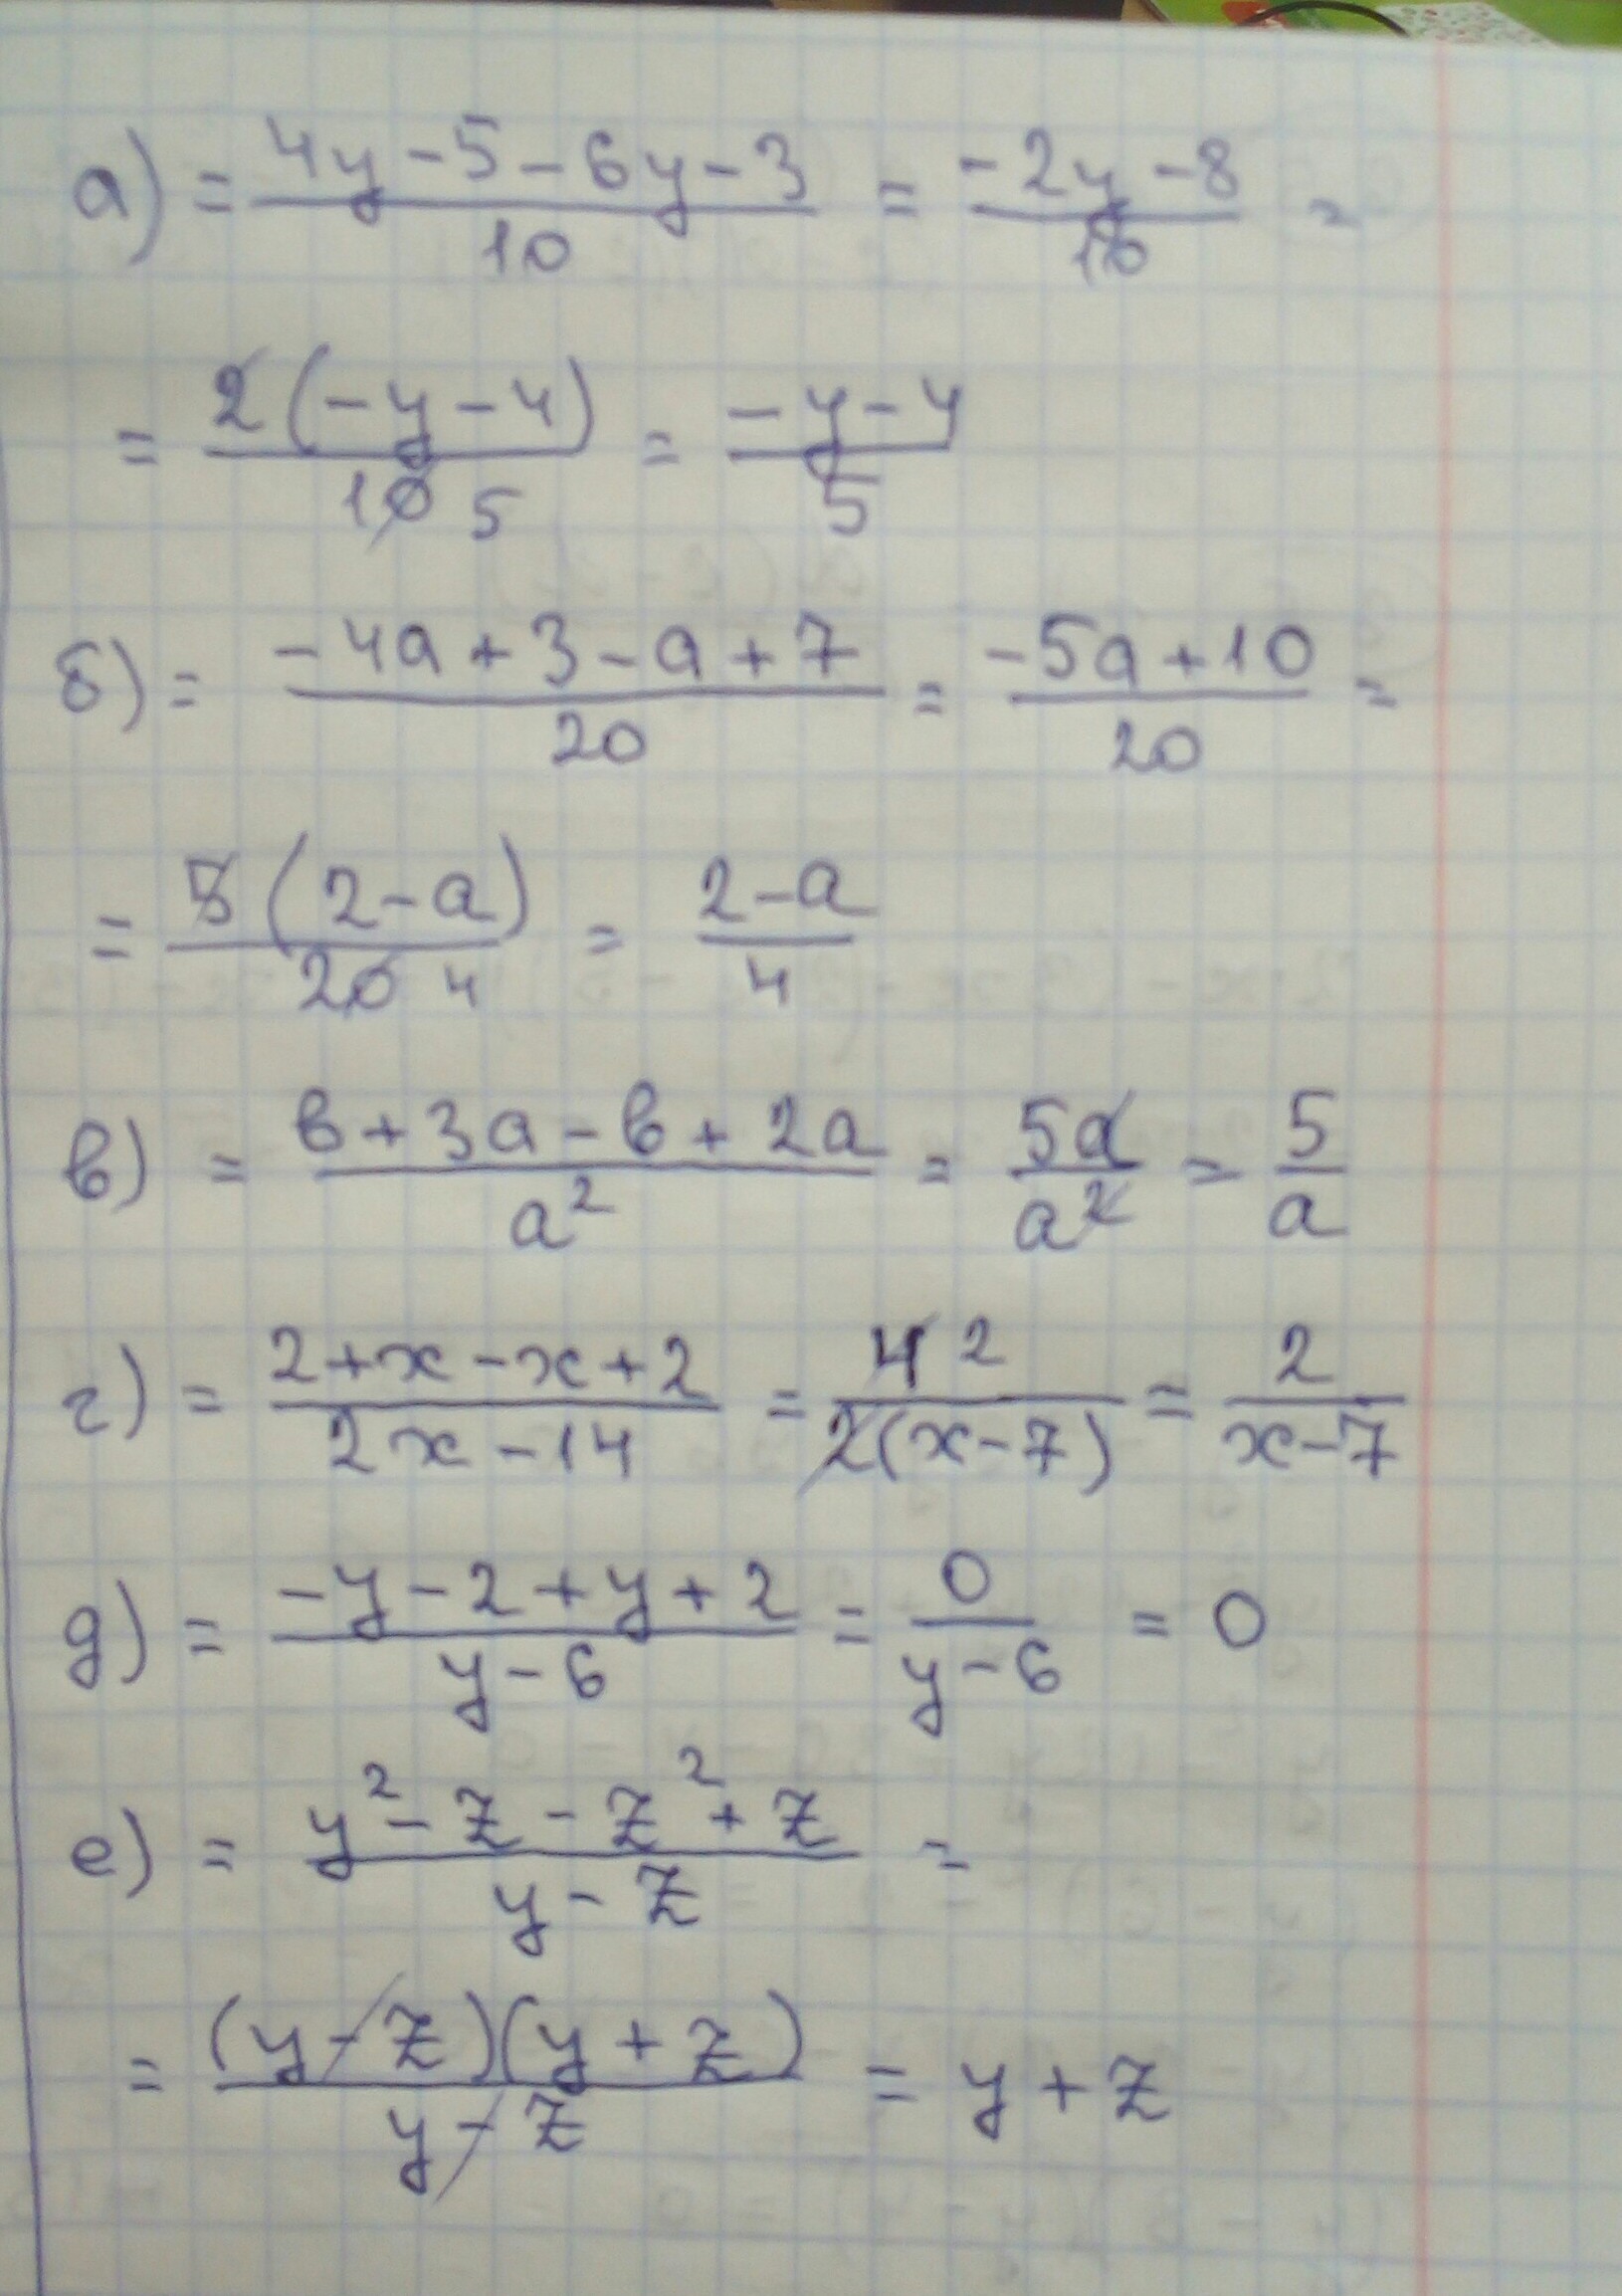 а) = (4y - 5 - 6y - 3)/10 = (-2y - 8)/10 =
= 2(-y - 4)/10 5 = (-y - 4)/5
б) = (-4a + 3 - a + 7)/20 = (-5a + 10)/20 =
= 5(2 - a)/20 4 = (2 - a)/4
в) = (b + 3a - b + 2a)/a² = 5a/a² = 5/a
г) = (2 + x - x + 2)/(2x - 14) = 4 2/2(x - 7) = 2/(x - 7)
д) = (-y - 2 + y + 2)/(y - 6) = 0/(y - 6) = 0
е) = (y² - z - z² + z)/(y - z) =
= (y - z)(y + z)/(y - z) = y + z